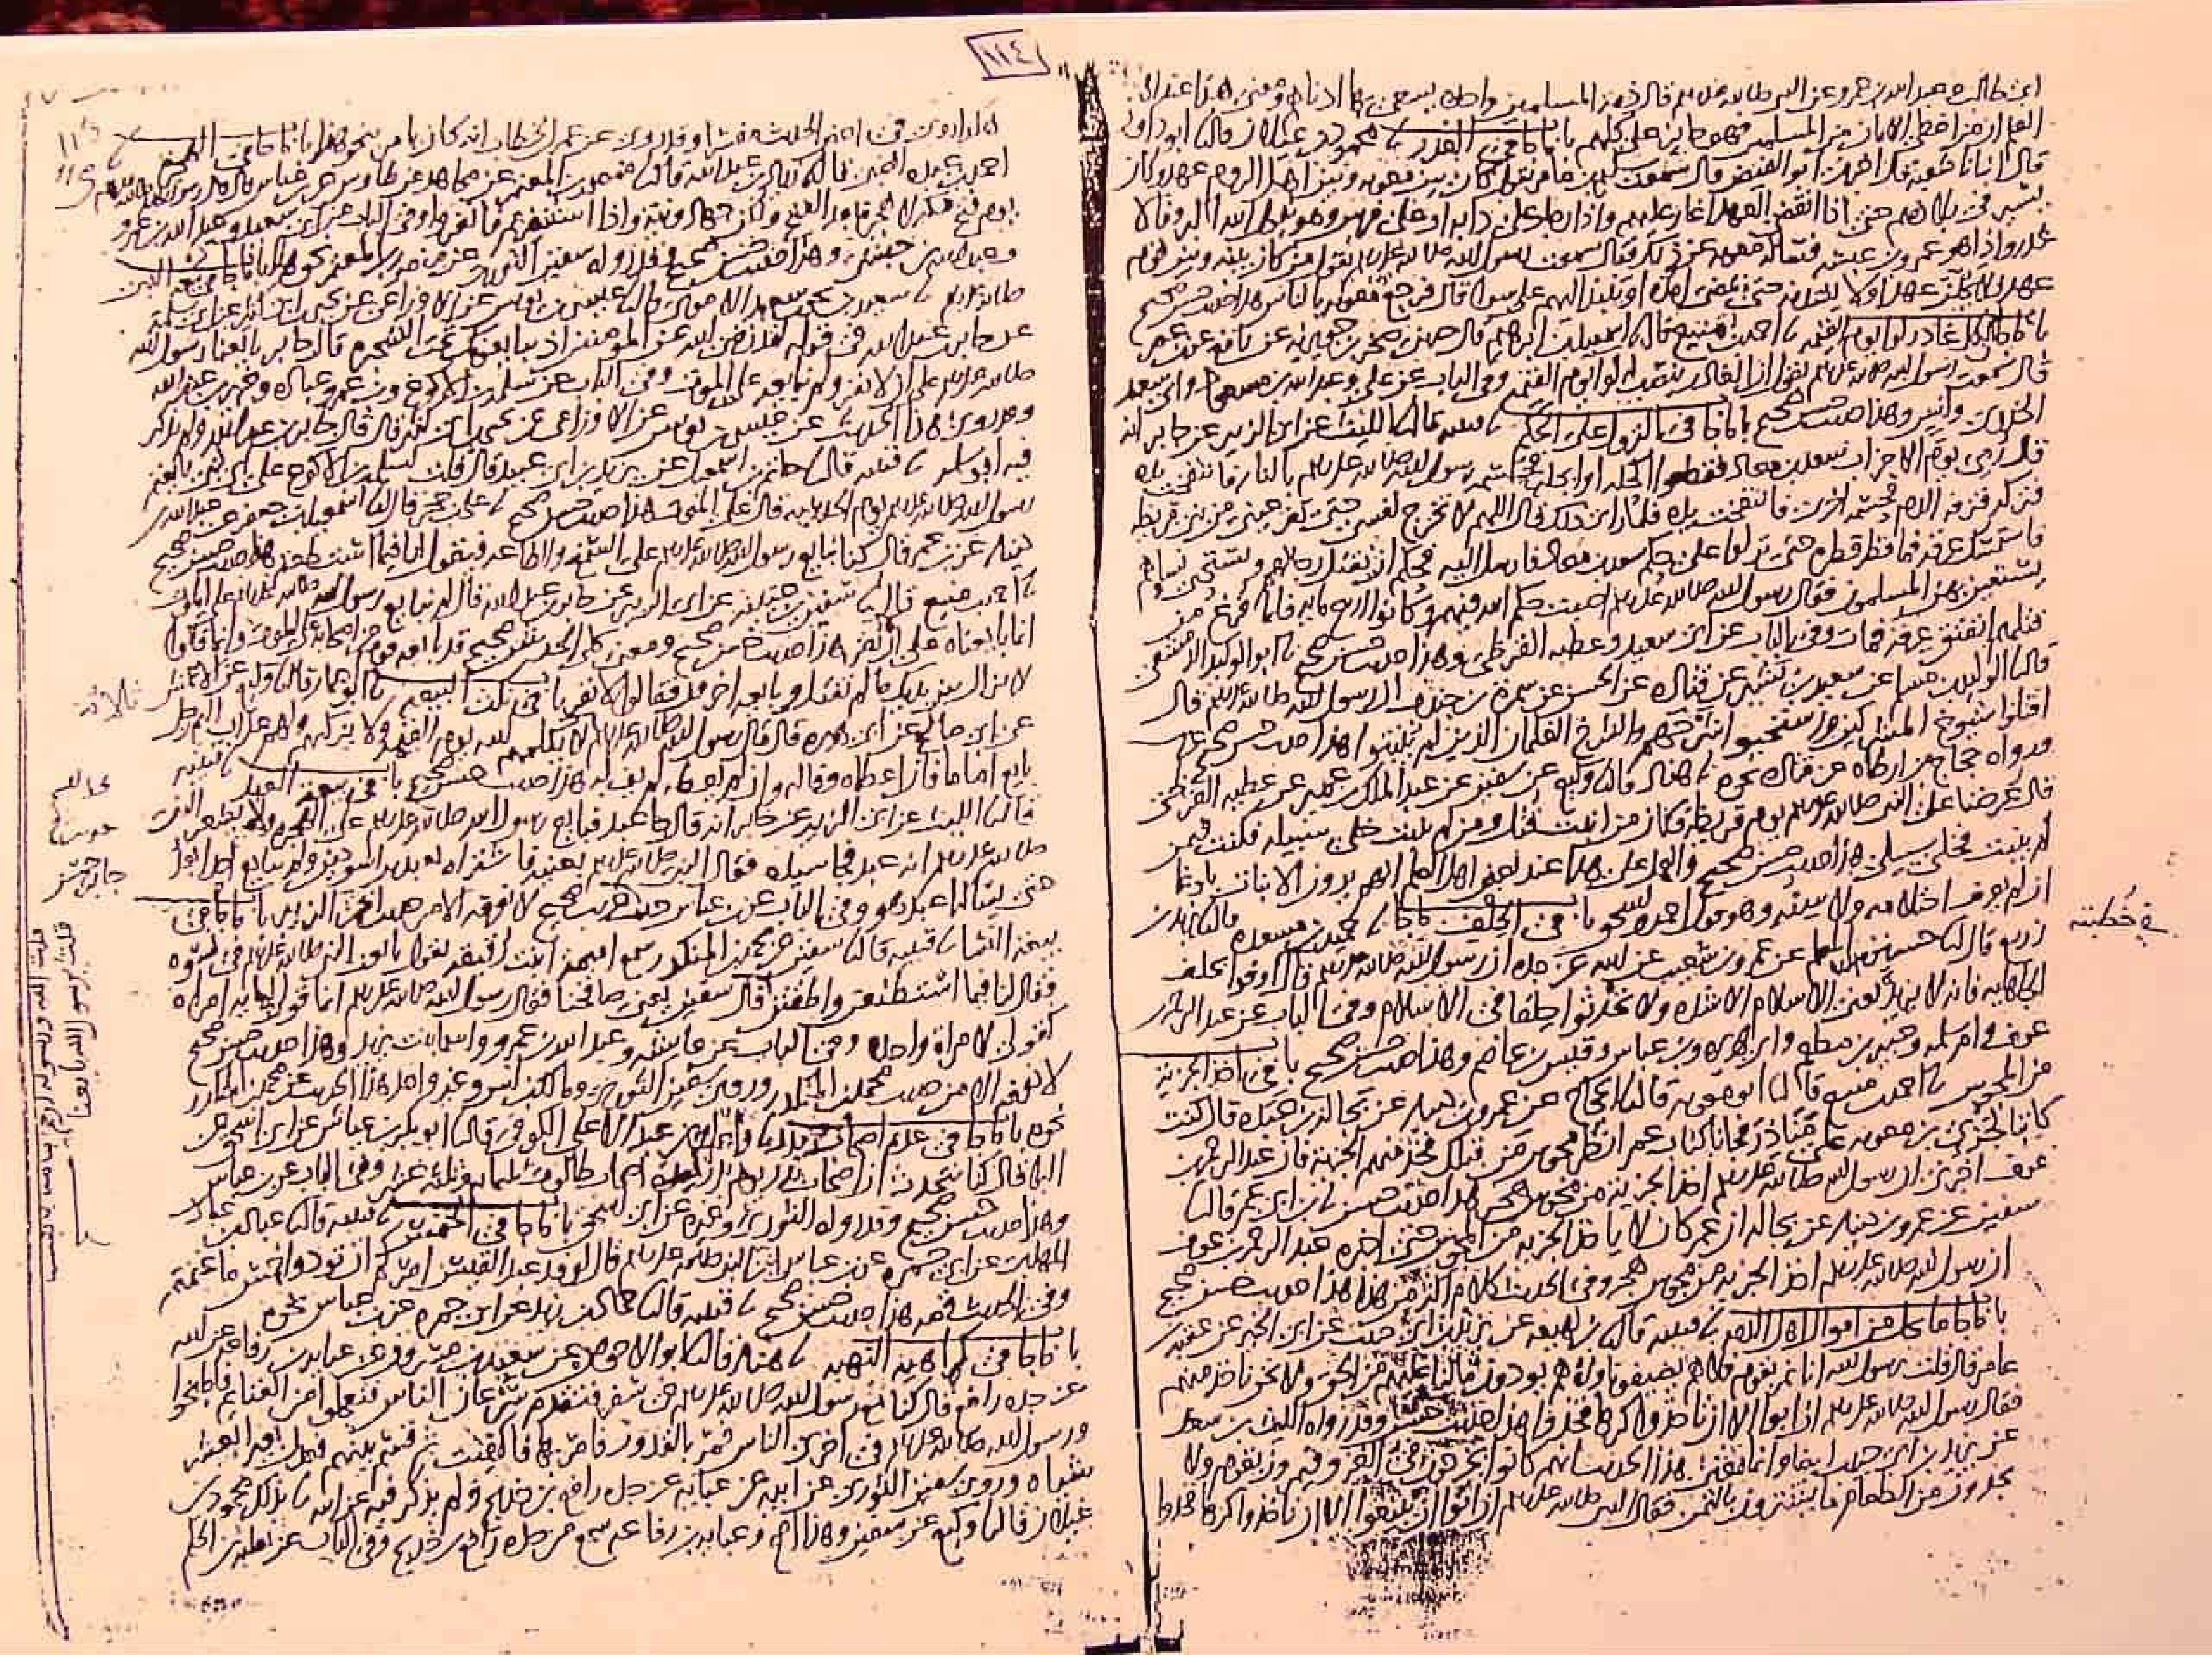 ١١٤
ابن طالب وعبد الله بن عمرو عن النبي صلى الله عليه وسلم قال ذمة المسلمين واحدة يسعى بها ادناهم ومعنى هذا عند اهل
العلم ان من اعطى الامان من المسلمين فهو جايز على كلهم باب ما جا في الغدر نا محمود بن غيلان قال نا ابو داود
قال انا شعبة قال اخبرني ابو الفيض قال سمعت سليم بن عامر يقول كان بين معوية وبين اهل الروم عهد وكان
يسير في بلادهم حتى اذا انقضى العهد اغار عليهم واذا رجل على دابة او على فرس وهو يقول الله اكبر وفا لا
غدر واذا هو عمرو بن عبسة فساله معوية عن ذلك فقال سمعت رسول الله صلى الله عليه وسلم يقول من كان بينه وبين قوم
عهد فلا يحلن عهدا ولا يشدنه حتى يمضي امده او ينبذ اليهم على سواء قال فرجع معوية بالناس هذا حديث حسن صحيح
باب ما جا ان لكل غادر لوا يوم القيمة نا احمد بن منيع قال نا اسمعيل بن ابرهيم قال حدثني صخر بن جويرية عن نافع عن ابن عمر
قال سمعت رسول الله صلى الله عليه وسلم يقول ان الغادر ينصب له لوا يوم القيمة وفي الباب عن علي وعبد الله بن مسعود وابي سعيد
الخدري وانس وهذا حديث حسن صحيح باب ما جا في النزول على الحكم نا قتيبة قال نا الليث عن ابي الزبير عن جابر انه
قال رمي يوم الاحزاب سعد بن معاذ فقطعوا اكحله او ابجله فحسمه رسول الله صلى الله عليه وسلم بالنار فانتفخت يده
فتركه فنزفه الدم فحسمه اخرى فانتفخت يده فلما راى ذلك قال اللهم لا تخرج نفسي حتى تقر عيني من بني قريظة
فاستمسك عرقه فما قطر قطرة حتى نزلوا على حكم سعد بن معاذ فارسل اليه فحكم ان تقتل رجالهم وتستحيى نساهم
يستعين بهن المسلمون فقال رسول الله صلى الله عليه وسلم اصبت حكم الله فيهم وكانوا اربع ماية فلما فرغ من
قتلهم انفتق عرقه فمات وفي الباب عن ابي سعيد وعطية القرظي وهذا حديث حسن صحيح نا ابو الوليد الدمشقي
قال نا الوليد بن مسلم عن سعيد بن بشير عن قتادة عن الحسن عن سمرة بن جندب ان رسول الله صلى الله عليه وسلم قال
اقتلوا شيوخ المشركين واستحيوا شرخهم والشرخ الغلمان الذين لم ينبتوا هذا حديث حسن صحيح غريب
ورواه حجاج بن ارطاة عن قتادة نحوه نا هناد قال نا وكيع عن سفين عن عبد الملك بن عمير عن عطية القرظي
قال عرضنا على النبي صلى الله عليه وسلم يوم قريظة فكان من انبت قتل ومن لم ينبت خلي سبيله فكنت فيمن
لم ينبت فخلي سبيلي هذا حديث حسن صحيح والعمل على هذا عند بعض اهل العلم انهم يرون الانبات بلوغا
ان لم يعرف احتلامه ولا سنه وهو قول احمد واسحق باب في الحلف نا حميد بن مسعدة قال نا يزيد بن
زريع قال نا حسين المعلم عن عمرو بن شعيب عن ابيه عن جده ان رسول الله صلى الله عليه وسلم قال اوفوا بحلف
في خطبته
الجاهلية فانه لا يزيده يعني الاسلام الا شدة ولا تحدثوا حلفا في الاسلام وفي الباب عن عبد الرحمن بن
عوف وام سلمة وجبير بن مطعم وابي هريرة وابن عباس وقيس بن عاصم وهذا حديث حسن صحيح باب في اخذ الجزية
من المجوس نا احمد بن منيع قال نا ابو معوية قال نا الحجاج عن عمرو بن دينار عن بجالة بن عبدة قال كنت
كاتبا لجزء بن معوية على مناذر فجانا كتاب عمر انظر مجوس من قبلك فخذ منهم الجزية فان عبد الرحمن بن
عوف اخبرني ان رسول الله صلى الله عليه وسلم اخذ الجزية من مجوس هجر هذا حديث حسن نا ابن ابي عمر قال نا
سفين عن عمرو بن دينار عن بجالة ان عمر كان لا ياخذ الجزية من المجوس حتى اخبره عبد الرحمن بن عوف
ان رسول الله صلى الله عليه وسلم اخذ الجزية من مجوس هجر وفي الحديث كلام اكثر من هذا هذا حديث حسن صحيح
باب ما جا ما يحل من اموال اهل الذمة نا قتيبة قال نا ابن لهيعة عن يزيد بن ابي حبيب عن ابي الخير عن عقبة بن
عامر قال قلت يا رسول الله انا نمر بقوم فلا هم يضيفونا ولا هم يودون ما لنا عليهم من الحق ولا نحن ناخذ منهم
فقال رسول الله صلى الله عليه وسلم ان ابوا الا ان تاخذوا كرها فخذوا هذا حديث حسن وقد رواه الليث بن سعد
عن يزيد بن ابي حبيب ايضا وانما معنى هذا الحديث انهم كانوا يخرجون في الغزو فيمرون بقوم ولا
يجدون من الطعام ما يشترون بالثمن فقال النبي صلى الله عليه وسلم ان ابوا ان يبيعوا الا ان تاخذوا كرها فخذوا
هكذا روي في بعض الحديث مفسرا وقد روي عن عمر بن الخطاب انه كان يامر بنحو هذا باب ما جا في الهجرة نا
احمد بن عبدة الضبي قال نا زياد بن عبد الله قال نا منصور بن المعتمر عن مجاهد عن طاوس عن ابن عباس قال قال رسول الله صلى الله عليه وسلم
يوم فتح مكة لا هجرة بعد الفتح ولكن جهاد ونية واذا استنفرتم فانفروا وفي الباب عن ابي سعيد وعبد الله بن عمرو
وعبد الله بن حبشي وهذا حديث حسن صحيح وقد رواه سفين الثوري عن منصور بن المعتمر نحو هذا باب ما جا في بيعة النبي
صلى الله عليه وسلم نا سعيد بن يحيى بن سعيد الاموي قال نا عيسى بن يونس عن الاوزاعي عن يحيى بن ابي كثير عن ابي سلمة
عن جابر بن عبد الله في قوله لقد رضي الله عن المومنين اذ يبايعونك تحت الشجرة قال جابر بايعنا رسول الله
صلى الله عليه وسلم على ان لا نفر ولم نبايعه على الموت وفي الباب عن سلمة بن الاكوع وابن عمر وعبادة وجرير بن عبد الله
وقد روي هذا الحديث عن عيسى بن يونس عن الاوزاعي عن يحيى بن ابي كثير قال قال جابر بن عبد الله ولم يذكر
فيه ابو سلمة نا قتيبة قال نا حاتم بن اسمعيل عن يزيد بن ابي عبيد قال قلت لسلمة بن الاكوع على اي شي بايعتم
رسول الله صلى الله عليه وسلم يوم الحديبية قال على الموت هذا حديث حسن صحيح نا علي بن حجر قال نا اسمعيل بن جعفر عن عبد الله بن
دينار عن ابن عمر قال كنا نبايع رسول الله صلى الله عليه وسلم على السمع والطاعة فيقول لنا فيما استطعتم هذا حديث حسن صحيح
نا احمد بن منيع قال نا سفين بن عيينة عن ابي الزبير عن جابر بن عبد الله قال لم نبايع رسول الله صلى الله عليه وسلم على الموت
انما بايعناه على ان لا نفر هذا حديث حسن صحيح ومعنى كلا الحديثين صحيح قد بايعه قوم من اصحابه على الموت وانما قالوا
لا نزال بين يديك ما لم نقتل وبايعه اخرون فقالوا لا نفر باب في نكث البيعة نا ابو عمار قال نا وكيع عن الاعمش
عن ابي صالح عن ابي هريرة قال قال رسول الله صلى الله عليه وسلم ثلاثة لا يكلمهم الله يوم القيمة ولا يزكيهم ولهم عذاب اليم رجل
بايع اماما فان اعطاه وفا له وان لم يعطه لم يف له هذا حديث حسن صحيح باب في بيعة العبد نا قتيبة
قال نا الليث عن ابي الزبير عن جابر انه قال جا عبد فبايع رسول الله صلى الله عليه وسلم على الهجرة ولا يشعر النبي
صلى الله عليه وسلم انه عبد فجا سيده فقال النبي صلى الله عليه وسلم بعنيه فاشتراه بعبدين اسودين ولم يبايع احدا بعد
حتى يساله اعبد هو وفي الباب عن ابن عباس حديث جابر حديث حسن صحيح لا نعرفه الا من حديث ابي الزبير باب ما جا في
بيعة النسا نا قتيبة قال نا سفين عن محمد بن المنكدر سمع اميمة ابنت رقيقة تقول بايعت النبي صلى الله عليه وسلم في نسوة
فقال لنا فيما استطعتن واطقتن قال سفين يعني صافحنا فقال رسول الله صلى الله عليه وسلم انما قولي لماية امراة
كقولي لامراة واحدة وفي الباب عن عايشة وعبد الله بن عمرو واسما بنت يزيد وهذا حديث حسن صحيح
لا نعرفه الا من حديث محمد بن المنكدر وروى سفين الثوري ومالك بن انس وغير واحد هذا الحديث عن محمد بن المنكدر
نحوه باب ما جا في عدة اصحاب بدر نا واصل بن عبد الاعلى الكوفي قال نا ابو بكر بن عياش عن ابي اسحق عن
البرا قال كنا نتحدث ان اصحاب بدر يوم بدر كعدة اصحاب طالوت ثلثماية وثلثة عشر وفي الباب عن ابن عباس
وهذا حديث حسن صحيح وقد رواه الثوري وغيره عن ابي اسحق باب ما جا في الخمس نا قتيبة قال نا عباد بن عباد
المهلبي عن ابي جمرة عن ابن عباس ان النبي صلى الله عليه وسلم قال لوفد عبد القيس امركم ان تودوا خمس ما غنمتم
وفي الحديث قصة هذا حديث حسن صحيح نا قتيبة قال نا حماد بن زيد عن ابي جمرة عن ابن عباس نحوه
باب ما جا في كراهية النهبة نا هناد قال نا ابو الاحوص عن سعيد بن مسروق عن عباية بن رفاعة عن ابيه
عن جده رافع قال كنا مع رسول الله صلى الله عليه وسلم في سفر فتقدم سرعان الناس فتعجلوا من الغنايم فاطبخوا
ورسول الله صلى الله عليه وسلم في اخرى الناس فمر بالقدور فامر بها فاكفيت ثم قسم بينهم فعدل بعيرا بعشر
شياه وروى سفين الثوري عن ابيه عن عباية عن جده رافع بن خديج ولم يذكر فيه عن ابيه نا بذلك محمود بن
غيلان قال نا وكيع عن سفين وهذا اصح وعباية بن رفاعة سمع من جده رافع بن خديج وفي الباب عن ثعلبة بن الحكم